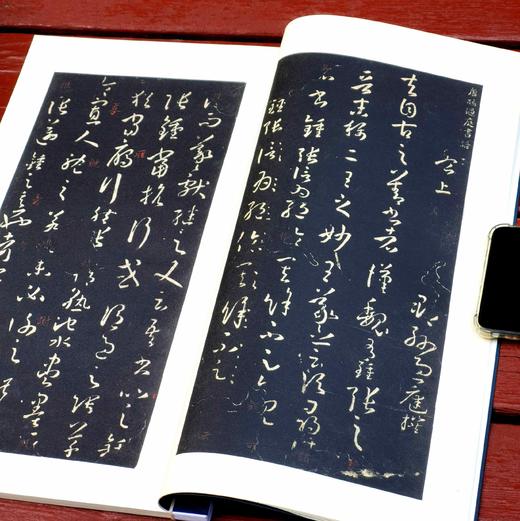 唐孫過庭書譜
卷上
吳郡孫過庭撰
夫自古之善書者漢魏有鍾張之
絕晉末稱二王之妙王羲之云頃尋諸
名書鍾張信為絕倫其餘不足觀
而羲獻繼之又云吾書比之鍾
張鍾當抗行或謂過之張草
猶當雁行然張精熟池水盡墨
令寡人耽之若此未必謝之
張邁鍾之意也考